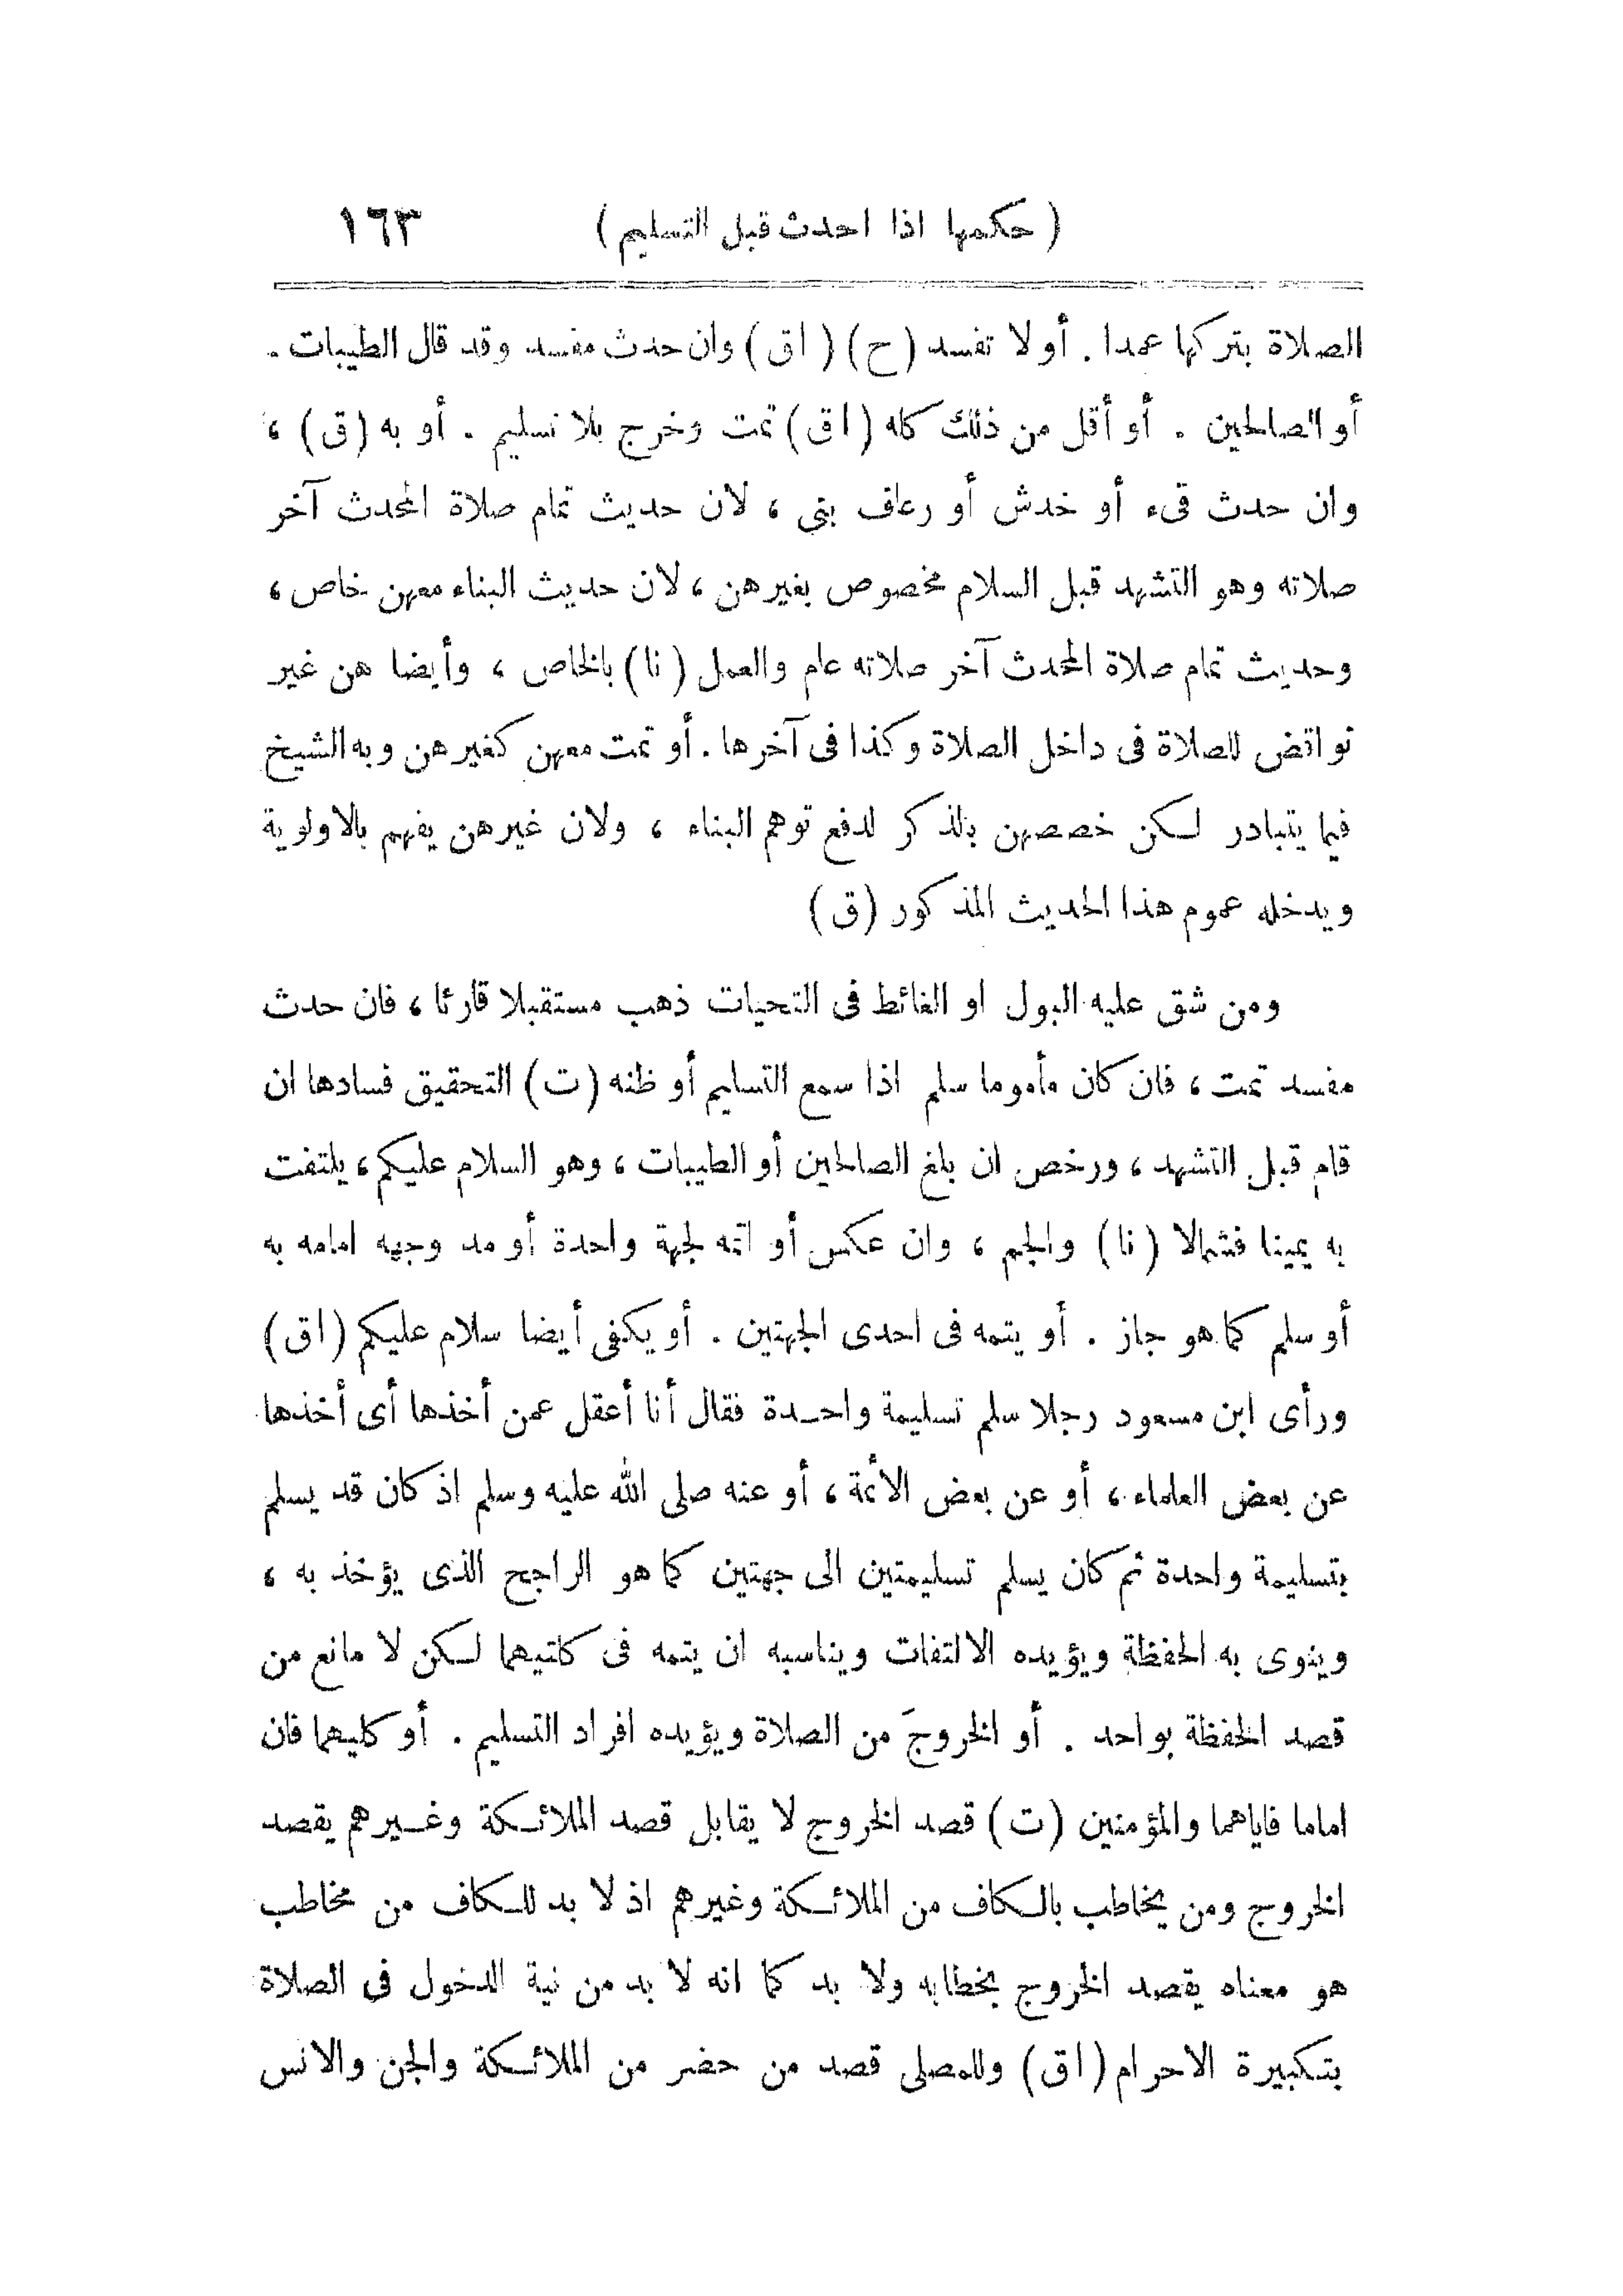 ( حكمها اذا احدث قبل التسليم ) ١٦٣
الصلاة بتركها عمدا . أو لا تفسد ( ح ) ( اق ) وان حدث مفسد وقد قال الطيبات .
أو الصالحين . أو أقل من ذلك كله ( اق ) تمت وخرج بلا تسليم . أو به ( ق ) ،
وان حدث قىء أو خدش أو رعاف بنى ، لان حديث تمام صلاة المحدث آخر
صلاته وهو التشهد قبل السلام مخصوص بغيرهن ، لان حديث البناء معهن خاص ،
وحديث تمام صلاة المحدث آخر صلاته عام والعمل ( نا ) بالخاص ، وأيضا هن غير
نواقض للصلاة فى داخل الصلاة وكذا فى آخرها . أو تمت معهن كغيرهن وبه الشيخ
فيما يتبادر لكن خصصهن بالذكر لدفع توهم البناء ، ولان غيرهن يفهم بالاولوية
ويدخله عموم هذا الحديث المذكور ( ق )
ومن شق عليه البول او الغائط فى التحيات ذهب مستقبلا قارئا ، فان حدث
مفسد تمت ، فان كان مأموما سلم اذا سمع التسليم أو ظنه ( ت ) التحقيق فسادها ان
قام قبل التشهد ، ورخص ان بلغ الصالحين أو الطيبات ، وهو السلام عليكم ، يلتفت
به يمينا فشمالا ( نا ) والجم ، وان عكس أو اتمه لجهة واحدة أو مد وجهه امامه به
أو سلم كما هو جاز . أو يتمه فى احدى الجهتين . أو يكفى أيضا سلام عليكم ( اق )
ورأى ابن مسعود رجلا سلم تسليمة واحدة فقال أنا أعقل عمن أخذها أى أخذها
عن بعض العلماء ، أو عن بعض الأئمة ، أو عنه صلى الله عليه وسلم اذ كان قد يسلم
بتسليمة واحدة ثم كان يسلم تسليمتين الى جهتين كما هو الراجح الذى يؤخذ به ،
وينوى به الحفظة ويؤيده الالتفات ويناسبه ان يتمه فى كلتيهما لكن لا مانع من
قصد الحفظة بواحد . أو الخروجَ من الصلاة ويؤيده افراد التسليم . أو كليهما فان
اماما فاياهما والمؤمنين ( ت ) قصد الخروج لا يقابل قصد الملائكة وغيرهم يقصد
الخروج ومن يخاطب بالكاف من الملائكة وغيرهم اذ لا بد للكاف من مخاطب
هو معناه يقصد الخروج بخطابه ولا بد كما انه لا بد من نية الدخول فى الصلاة
بتكبيرة الاحرام ( اق ) وللمصلى قصد من حضر من الملائكة والجن والانس